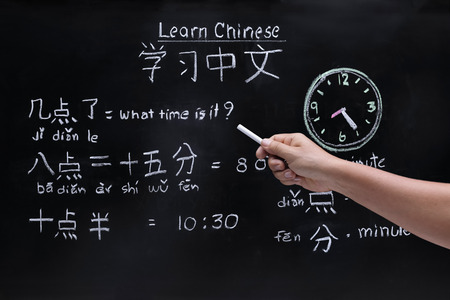 Learn Chinese
学习中文
几点了 = what time is it?
jǐ diǎn le
12
3
6
9
八点二十五分 = 8
bā diǎn àr shí wǔ fēn
diǎn 点
十点半 = 10:30
fēn 分 · minute